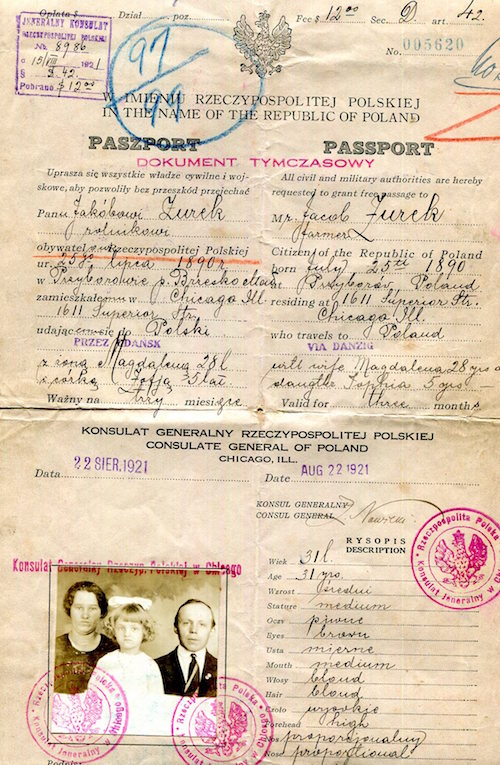 Opłata $ Dział poz. Fee $ 12.00 Sec. D. art. 42.
JENERALNY KONSULAT
RZECZYPOSPOLITEJ POLSKIEJ
№ 8986
d 15/VIII 1921
§ 42
Pobrano $12.00
97
No. 005620
W IMIENIU RZECZYPOSPOLITEJ POLSKIEJ
IN THE NAME OF THE REPUBLIC OF POLAND
PASZPORT PASSPORT
DOKUMENT TYMCZASOWY
Uprasza się wszystkie władze cywilne i woj-
skowe, aby pozwoliły bez przeszkód przejechać
Panu Jakóbowi Zurek
rolnikowi
obywatelowi Rzeczypospolitej Polskiej
ur. 25go lipca 1890r
w Przyborowie p. Brzesko
zamieszkałemu w Chicago Ill.
1611 Superior Str.
udającemu się do Polski
PRZEZ GDAŃSK
z żoną Magdaleną 28 l.
z córką Zofją 5 lat.
Ważny na trzy miesiące
All civil and military authorities are hereby
requested to grant free passage to
Mr. Jacob Zurek
farmer
Citizen of the Republic of Poland
born July 25th 1890
at Przyborów, Poland
residing at 1611 Superior Str.
Chicago Ill.
who travels to Poland
VIA DANZIG
with wife Magdalena 28 yrs a
daugter Sophia 5 yrs
Valid for three months
KONSULAT GENERALNY RZECZYPOSPOLITEJ POLSKIEJ
CONSULATE GENERAL OF POLAND
CHICAGO, ILL.
Data 22 SIER. 1921 Date AUG 22 1921
KONSUL GENERALNY
CONSUL GENERAL
RYSOPIS
DESCRIPTION
Wiek 31 l.
Age 31 yrs.
Wzrost średni
Stature medium
Oczy piwne
Eyes brown
Usta mierne
Mouth medium
Włosy blond
Hair blond
Czoło wysokie
Forehead high
Nos proporcjonalny
Nose proportional
Konsulat Generalny Rzeczyp. Polskiej w Chicago
Rzeczpospolita Polska
Konsulat Jeneralny w Chicago
Podpis